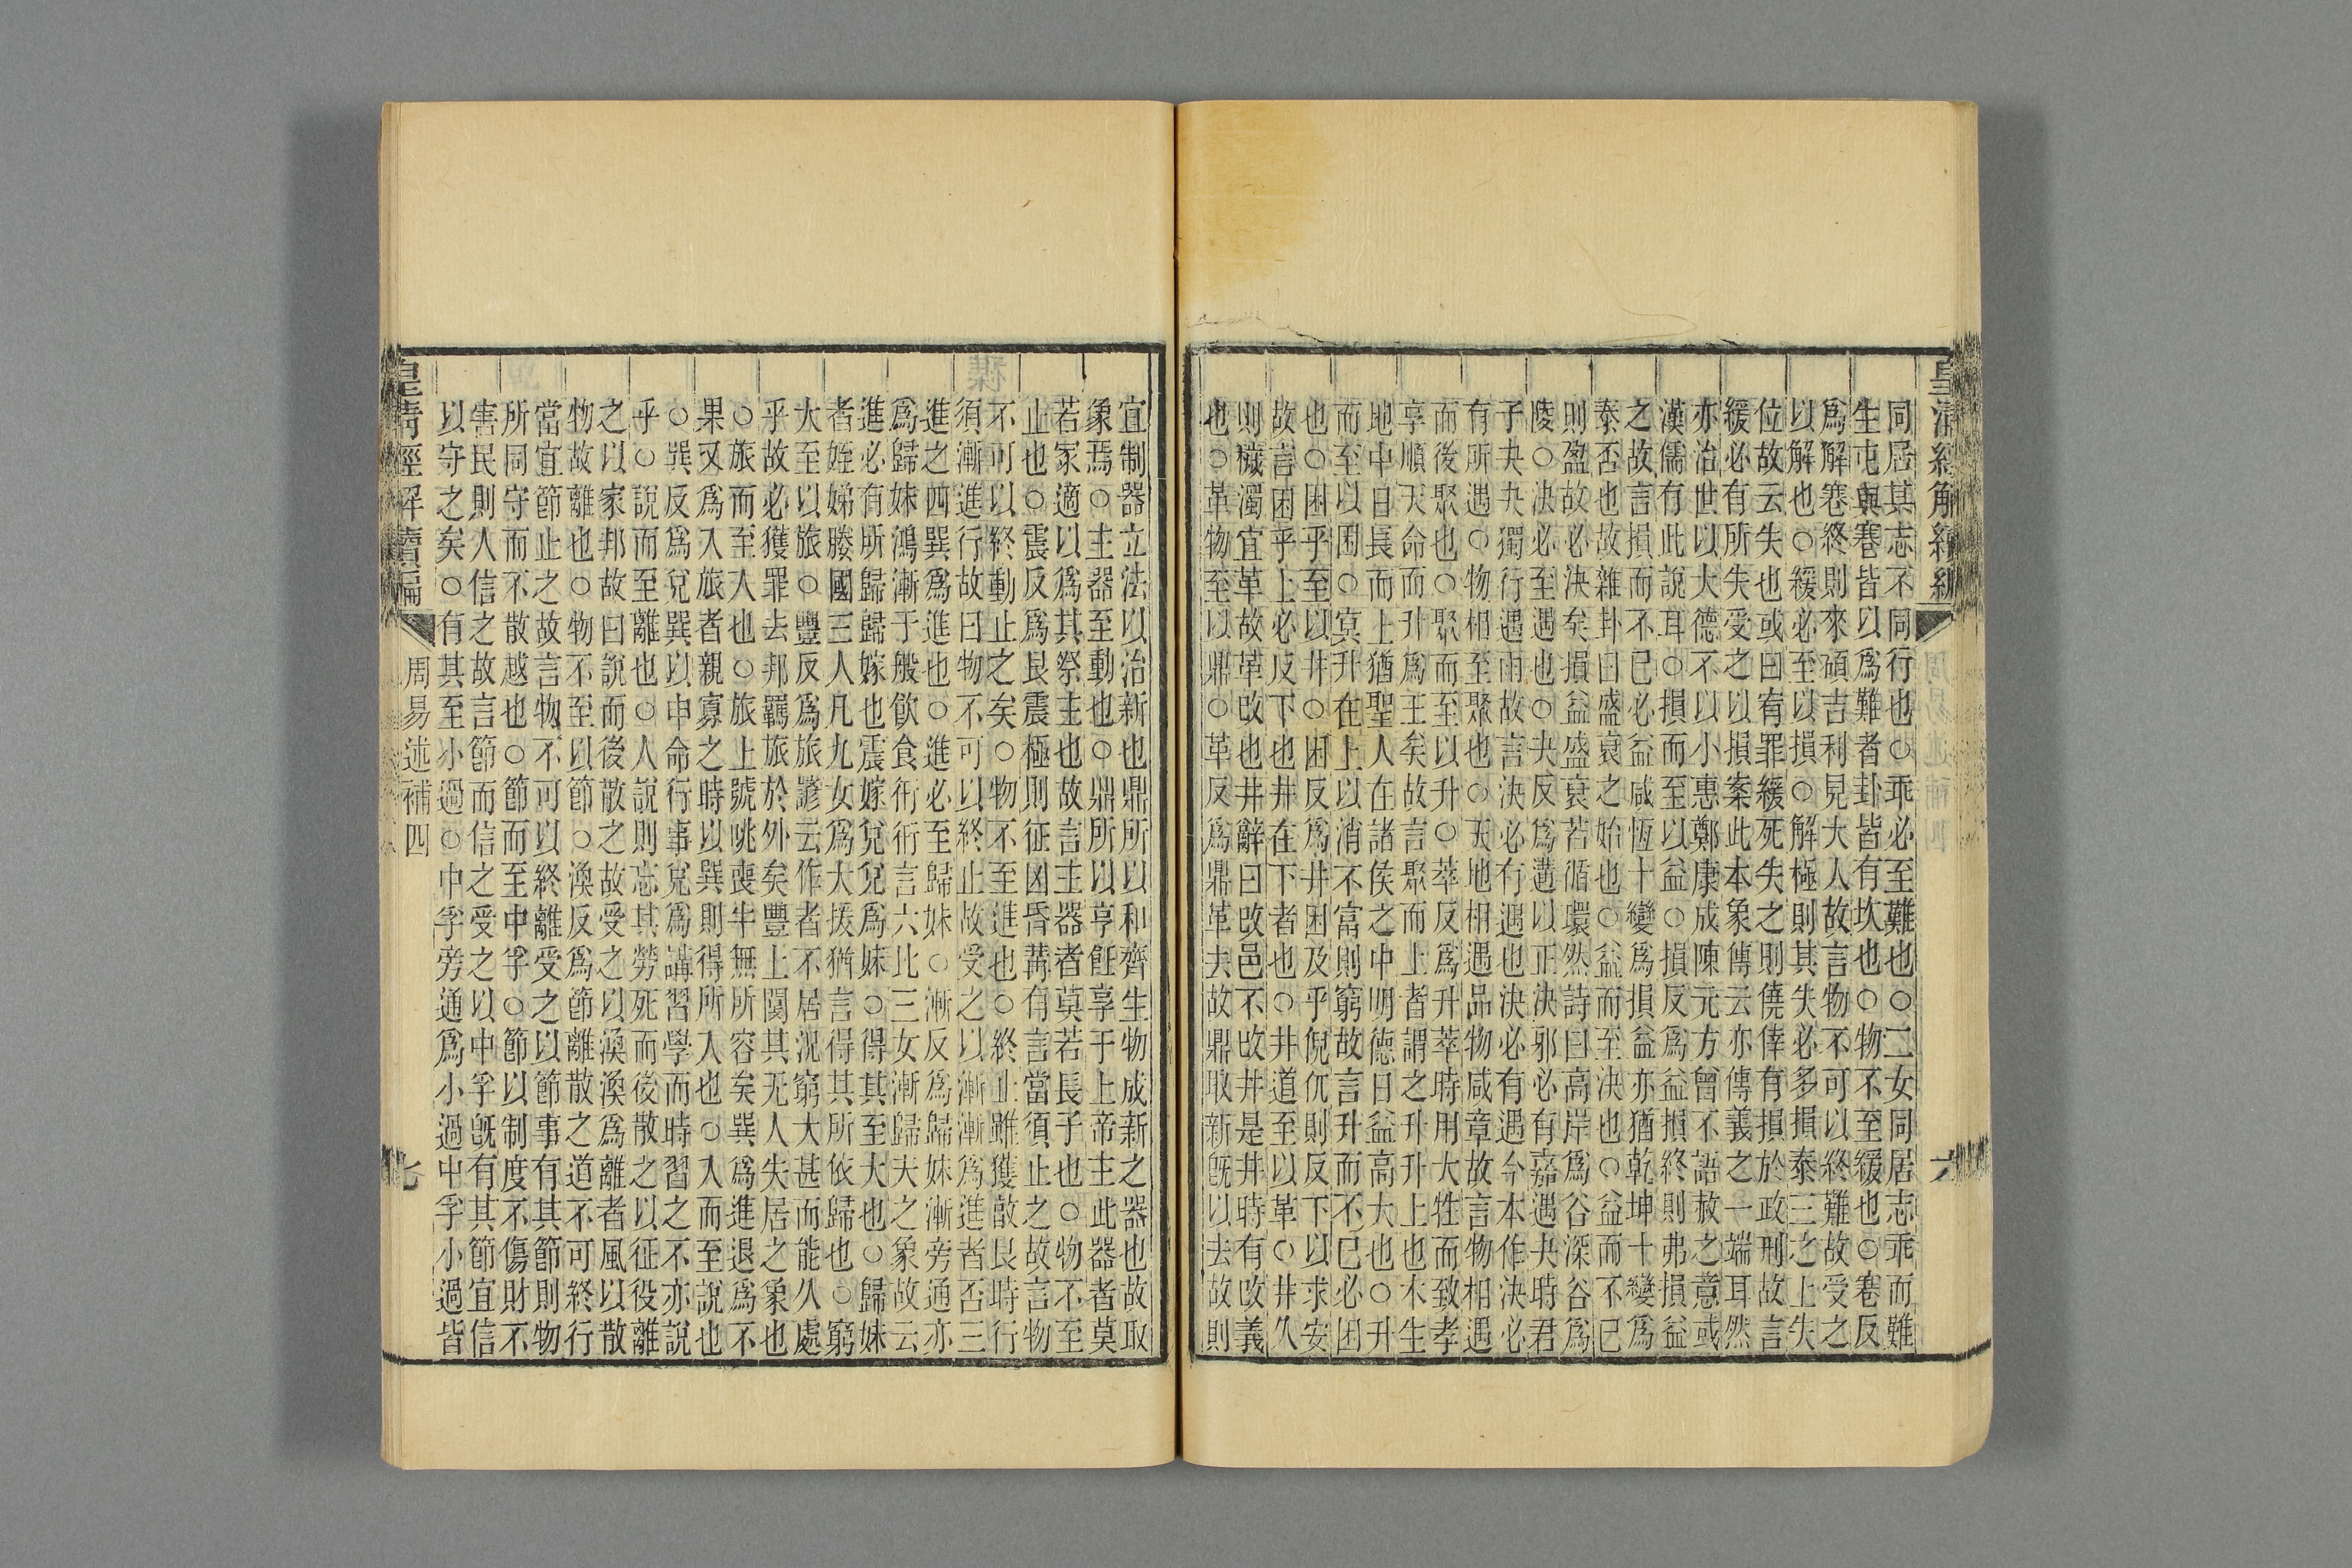 皇清經解續編
六
同居其志不同行也○乖必至難也○二女同居志乖而難
生屯與蹇皆以爲難者卦皆有坎也○物不至緩也○蹇反
爲解蹇終則來碩吉利見大人故言物不可以終難故受之
以解也○緩必至以損○解極則其失必多損泰三之上失
位故云失也或曰宥罪緩死失之則僥倖有損於政刑故言
緩必有所失受之以損案此本象傳云亦傳義之一端耳然
亦治世以大德不以小惠鄭康成陳元方曾不語赦之意或
漢儒有此說耳○損而至以益○損反爲益損終則弗損益
之故言損而不已必益咸恆十變爲損益亦猶乾坤十變爲
泰否也故雜卦曰盛衰之始也○益而至決也○益而不已
則盈故必決矣損益盛衰若循環然詩曰高岸爲谷深谷爲
陵○決必至遇也○夬反爲遘以正決邪必有嘉遇夬時君
子夬夬獨行遇雨故言決必有遇也決必有遇今本作決必
有所遇○物相至聚也○天地相遇品物咸章故言物相遇
而後聚也○聚而至以升○萃反爲升萃時用大牲而致孝
享順天命而升爲王矣故言聚而上者謂之升升上也木生
地中日長而上猶聖人在諸侯之中明德日益高大也○升
而至以困○冥升在上以消不富則窮故言升而不已必困
也○困乎至以井○困反爲井困及乎倪伉則反下以求安
故言困乎上必反下也井在下者也○井道至以革○井久
則穢濁宜革故革改也井辭曰改邑不改井是井時有改義
也○革物至以鼎○革反爲鼎革去故鼎取新旣以去故則
宜制器立法以治新也鼎所以和齊生物成新之器也故取
象焉○主器至動也○鼎所以亨飪享于上帝主此器者莫
若家適以爲其祭主也故言主器者莫若長子也○物不至
止也○震反爲艮震極則征凶昏冓有言當須止之故言物
不可以終動止之矣○物不至進也○終止雖獲敵艮時行
須漸進行故曰物不可以終止故受之以漸漸爲進者否三
進之四巽爲進也○進必至歸妹○漸反爲歸妹漸旁通亦
爲歸妹鴻漸于般飮食衎衎言六比三女漸歸夫之象故云
進必有所歸歸嫁也震嫁兌兌爲妹○得其至大也○歸妹
者姪娣媵國三人凡九女爲大援猶言得其所依歸也○窮
大至以旅○豐反爲旅諺云作者不居況窮大甚而能久處
乎故必獲罪去邦羈旅於外矣豐上闃其无人失居之象也
○旅而至入也○旅上號咷喪牛無所容矣巽爲進退爲不
果又爲入旅者親寡之時以巽則得所入也○入而至說也
○巽反爲兌巽以申命行事兌爲講習學而時習之不亦說
乎○說而至離也○人說則忘其勞死而後散之以征役離
之以家邦故曰說而後散之故受之以渙渙爲離者風以散
物故離也○物不至以節○渙反爲節離散之道不可終行
當宜節止之故言物不可以終離受之以節事有其節則物
所同守而不散越也○節而至中孚○節以制度不傷財不
害民則人信之故言節而信之受之以中孚旣有其節宜信
以守之矣○有其至小過○中孚旁通爲小過中孚小過皆
皇清經解續編
周易述補四
七